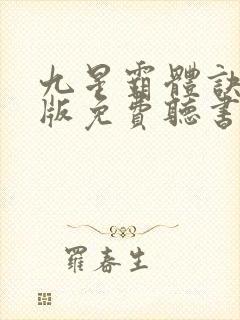 九星霸體訣
版免費聽書
羅春生